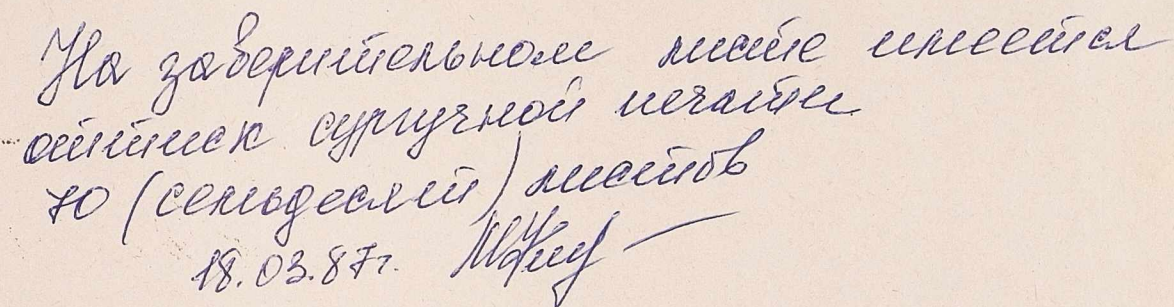 На заверительном листе имеется
оттиск сургучной печати
70 (семьдесят) листов
18.03.87г.